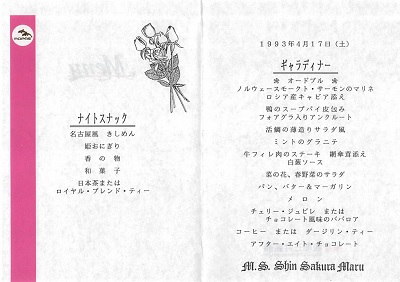 ナイトスナック
名古屋風 きしめん
姫おにぎり
香の物
和菓子
日本茶または
ロイヤル・ブレンド・ティー
1993年4月17日(土)
ギャラディナー
オードブル
ノルウェースモークト・サーモンのマリネ
ロシア産キャビア添え
鴨のスープパイ皮包み
フォアグラ入りアンクルート
活鯛の薄造りサラダ風
ミントのグラニテ
牛フィレ肉のステーキ 網傘茸添え
白葱ソース
菜の花、春野菜のサラダ
パン、バター&マーガリン
メロン
チェリー・ジュビレ または
チョコレート風味のババロア
コーヒー または ダージリン・ティー
アフター・エイト・チョコレート
M.S. Shin Sakura Maru